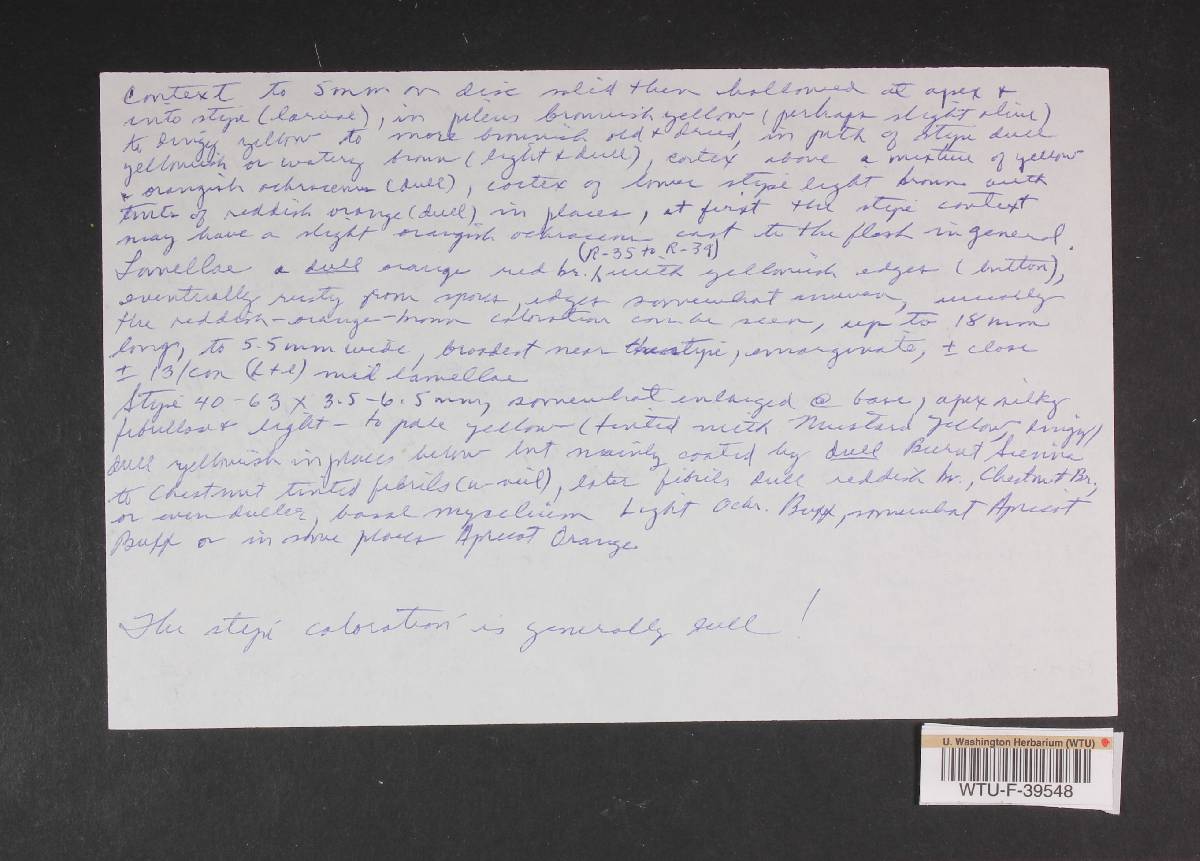 Context to 5mm on disc solid then hollowed at apex &
into stipe (larvae), in pileus brownish yellow (perhaps slight olive)
to dingy yellow to more brownish old & dried, in pith of stipe dull
yellowish or watery brown (light & dull), cortex above a mixture of yellow
& orangish ochraceous (dull), cortex of lower stipe light brown with
tints of reddish orange (dull) in places, at first the stipe context
may have a slight orangish ochraceous cast to the flesh in general.
(R-35 to R-39)
Lamellae a dull orange red br. with yellowish edges (button),
eventually rusty from spores, edges somewhat uneven, usually
the reddish-orange-brown coloration can be seen, up to 18mm
long, to 5.5mm wide, broadest near stipe, emarginate, ± close
± 13/cm (L+l) mid lamellae
Stipe 40-63 x 3.5-6.5mm, somewhat enlarged @ base, apex silky
fibrillose & light- to pale yellow (tinted with Mustard Yellow, dingy/
dull yellowish in places below but mainly coated by dull Burnt Sienna
to Chestnut tinted fibrils (u-veil), later fibrils dull reddish br., Chestnut Br.,
or even duller, basal mycelium Light Ochr. Buff, somewhat Apricot
Buff or in some places Apricot Orange.
The stipe coloration is generally dull!
U. Washington Herbarium (WTU)
WTU-F-39548